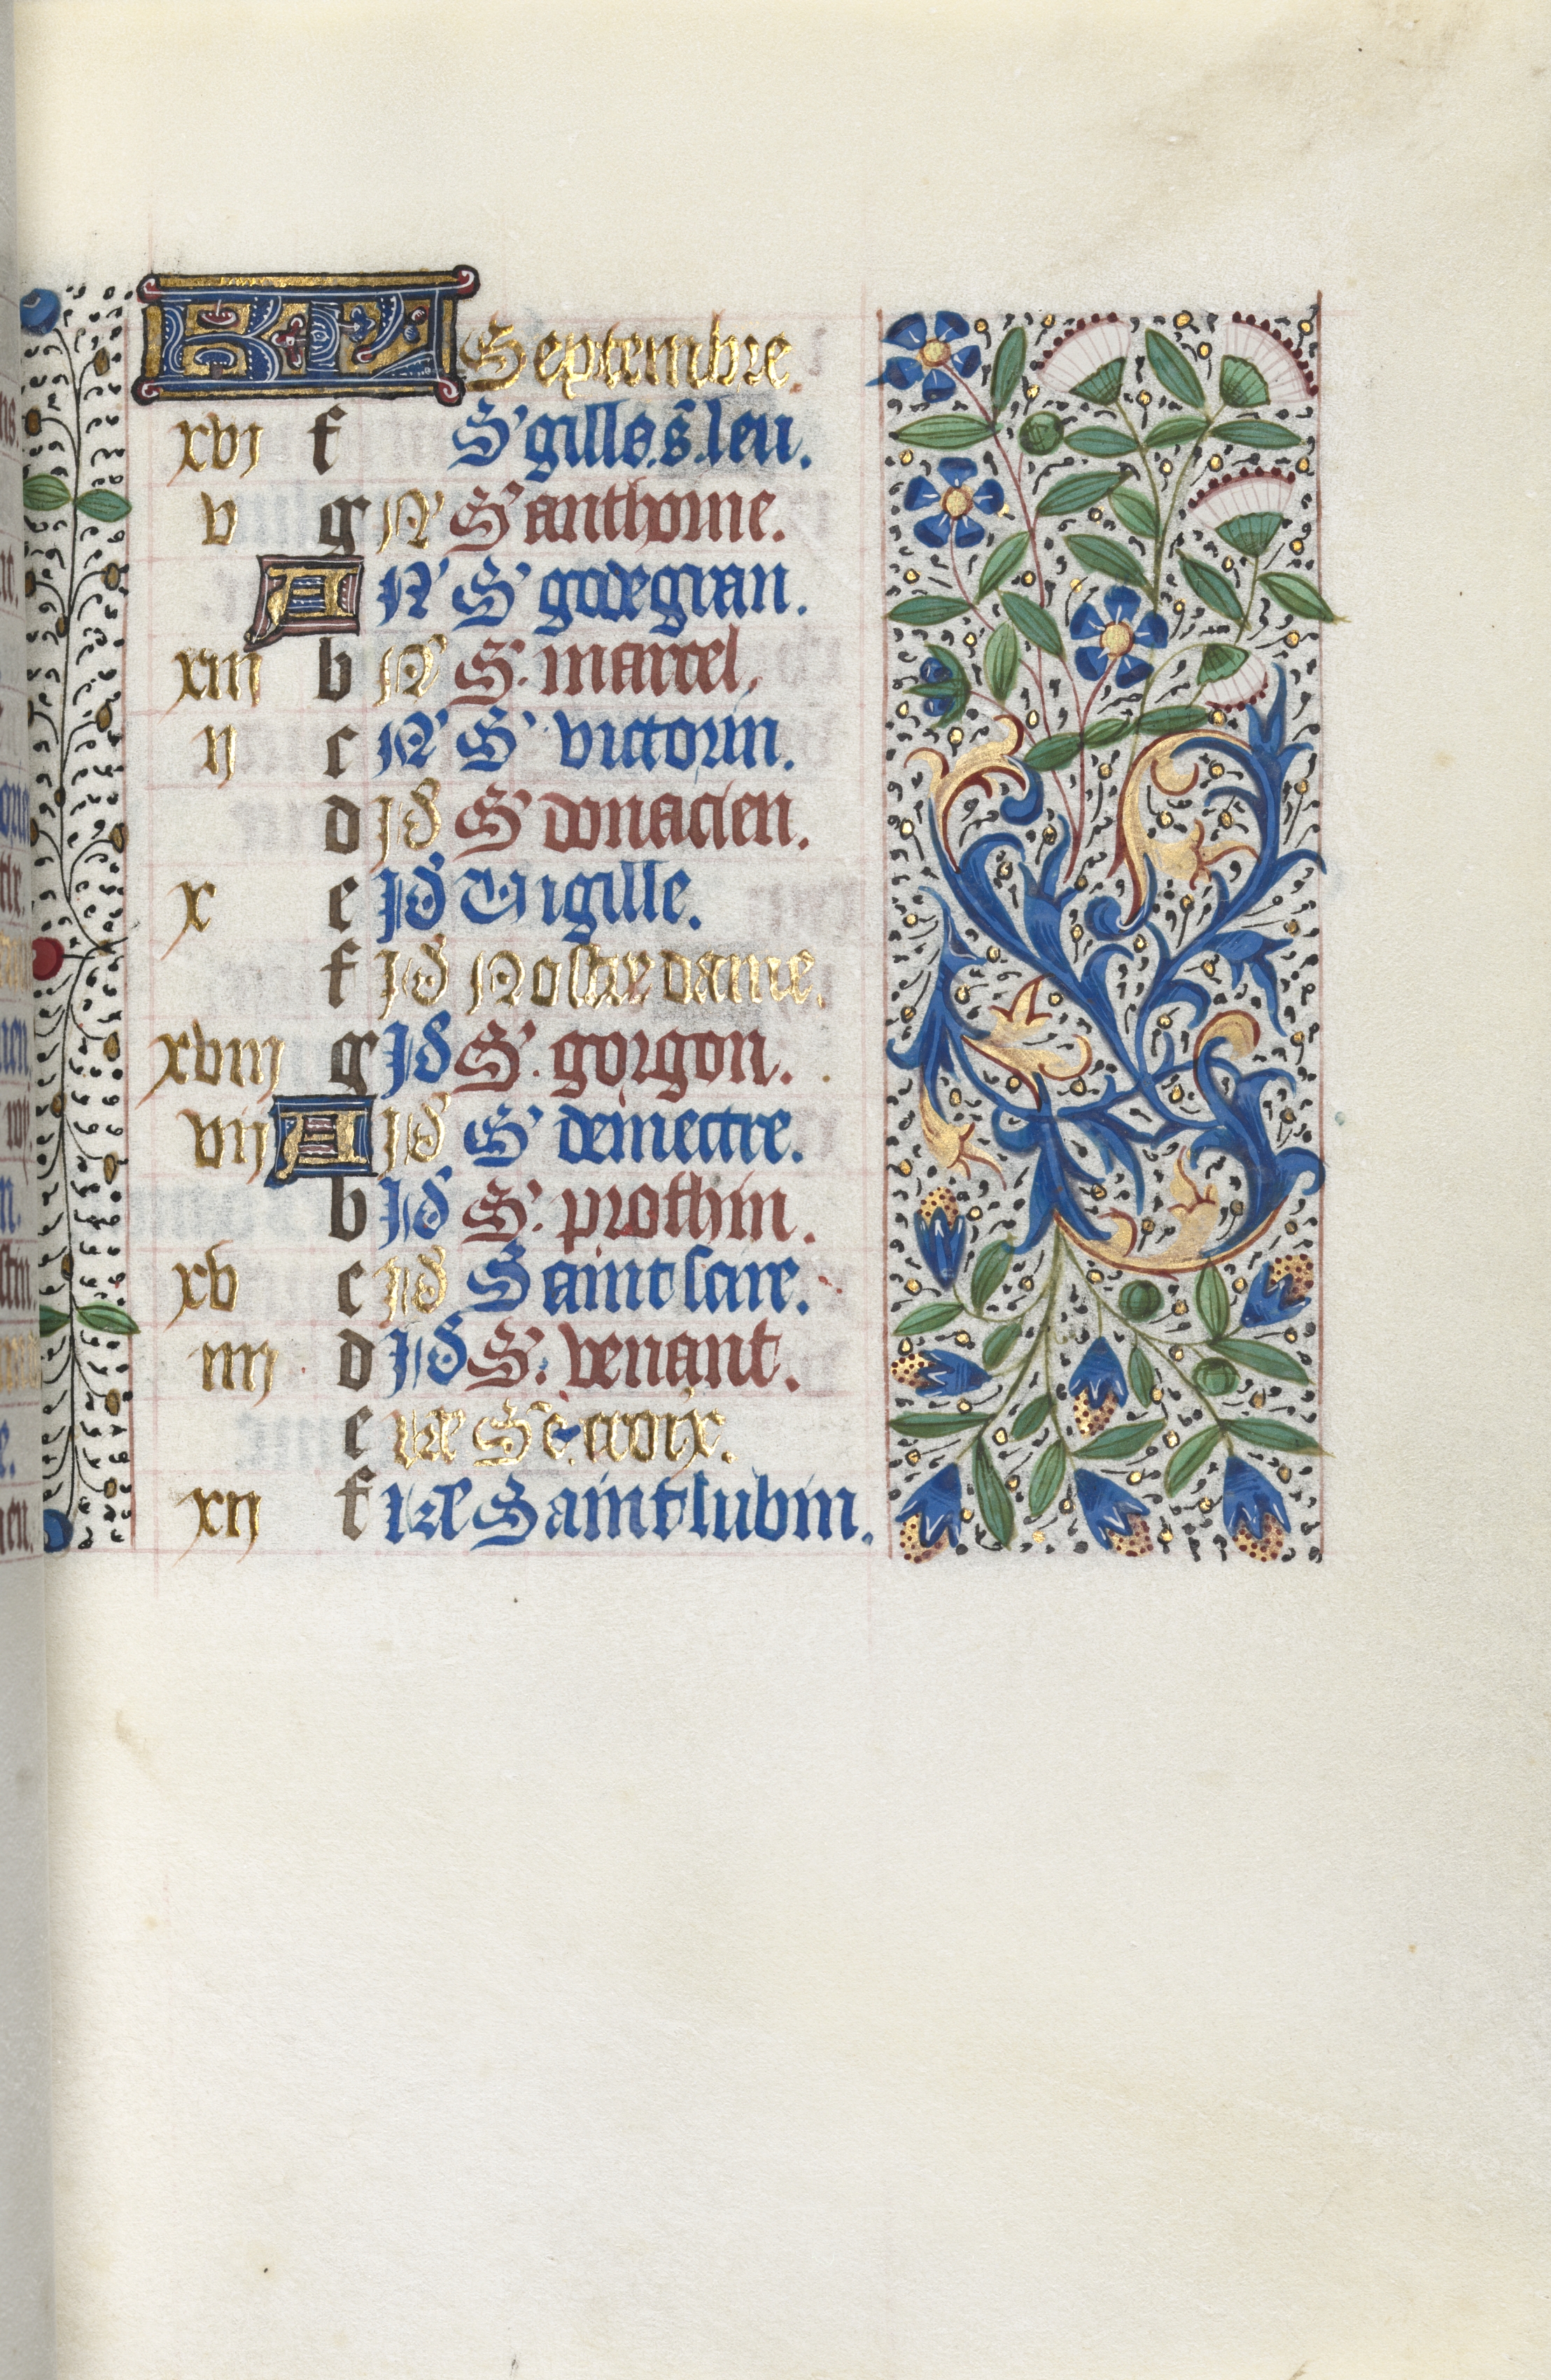 KL Septembre.
xvj f S' gilles. s. leu.
v g N' S' anthoine.
A N' S' godegran.
xiij b N' S. marcel.
ij c N' S' victorin.
d Id S' donacien.
x e Id Vigille.
f Id Nostre dame.
xviij g Id S'. gorgon.
vij A Id S' demectre.
b Id S'. prothin.
xv c Id Saint scire.
iiij d Id S'. venant.
e xviii Ste. croix.
xij f Saint lubin.